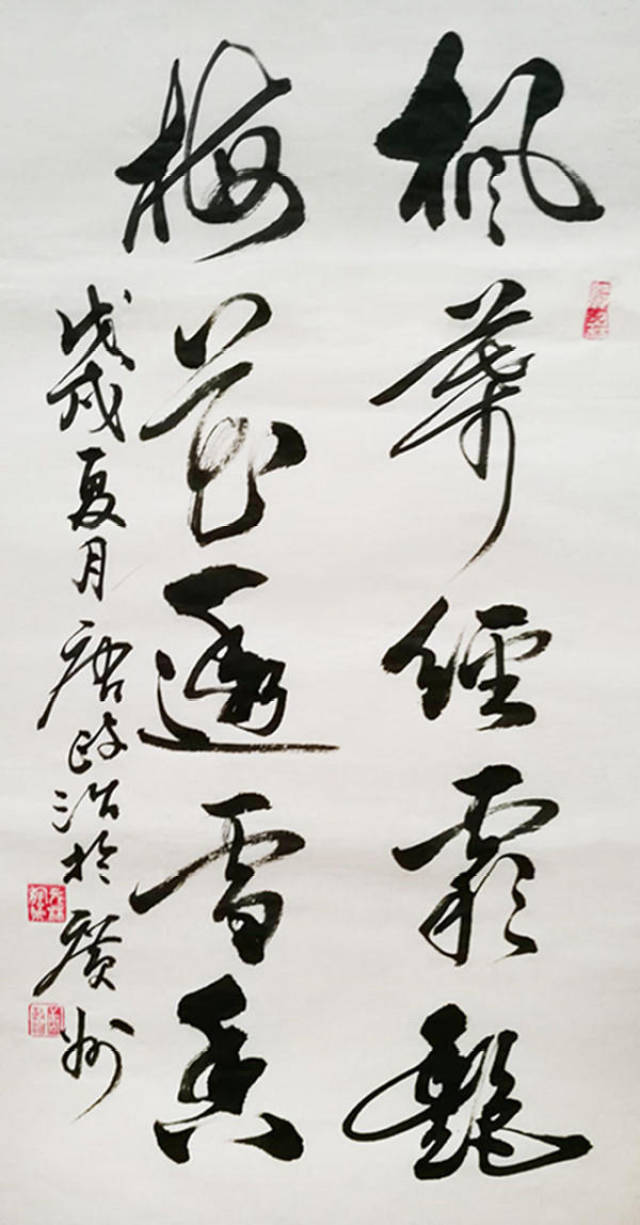 楓葉經霜艷
梅花透雪香
戊戌夏月唐政浩於廣州